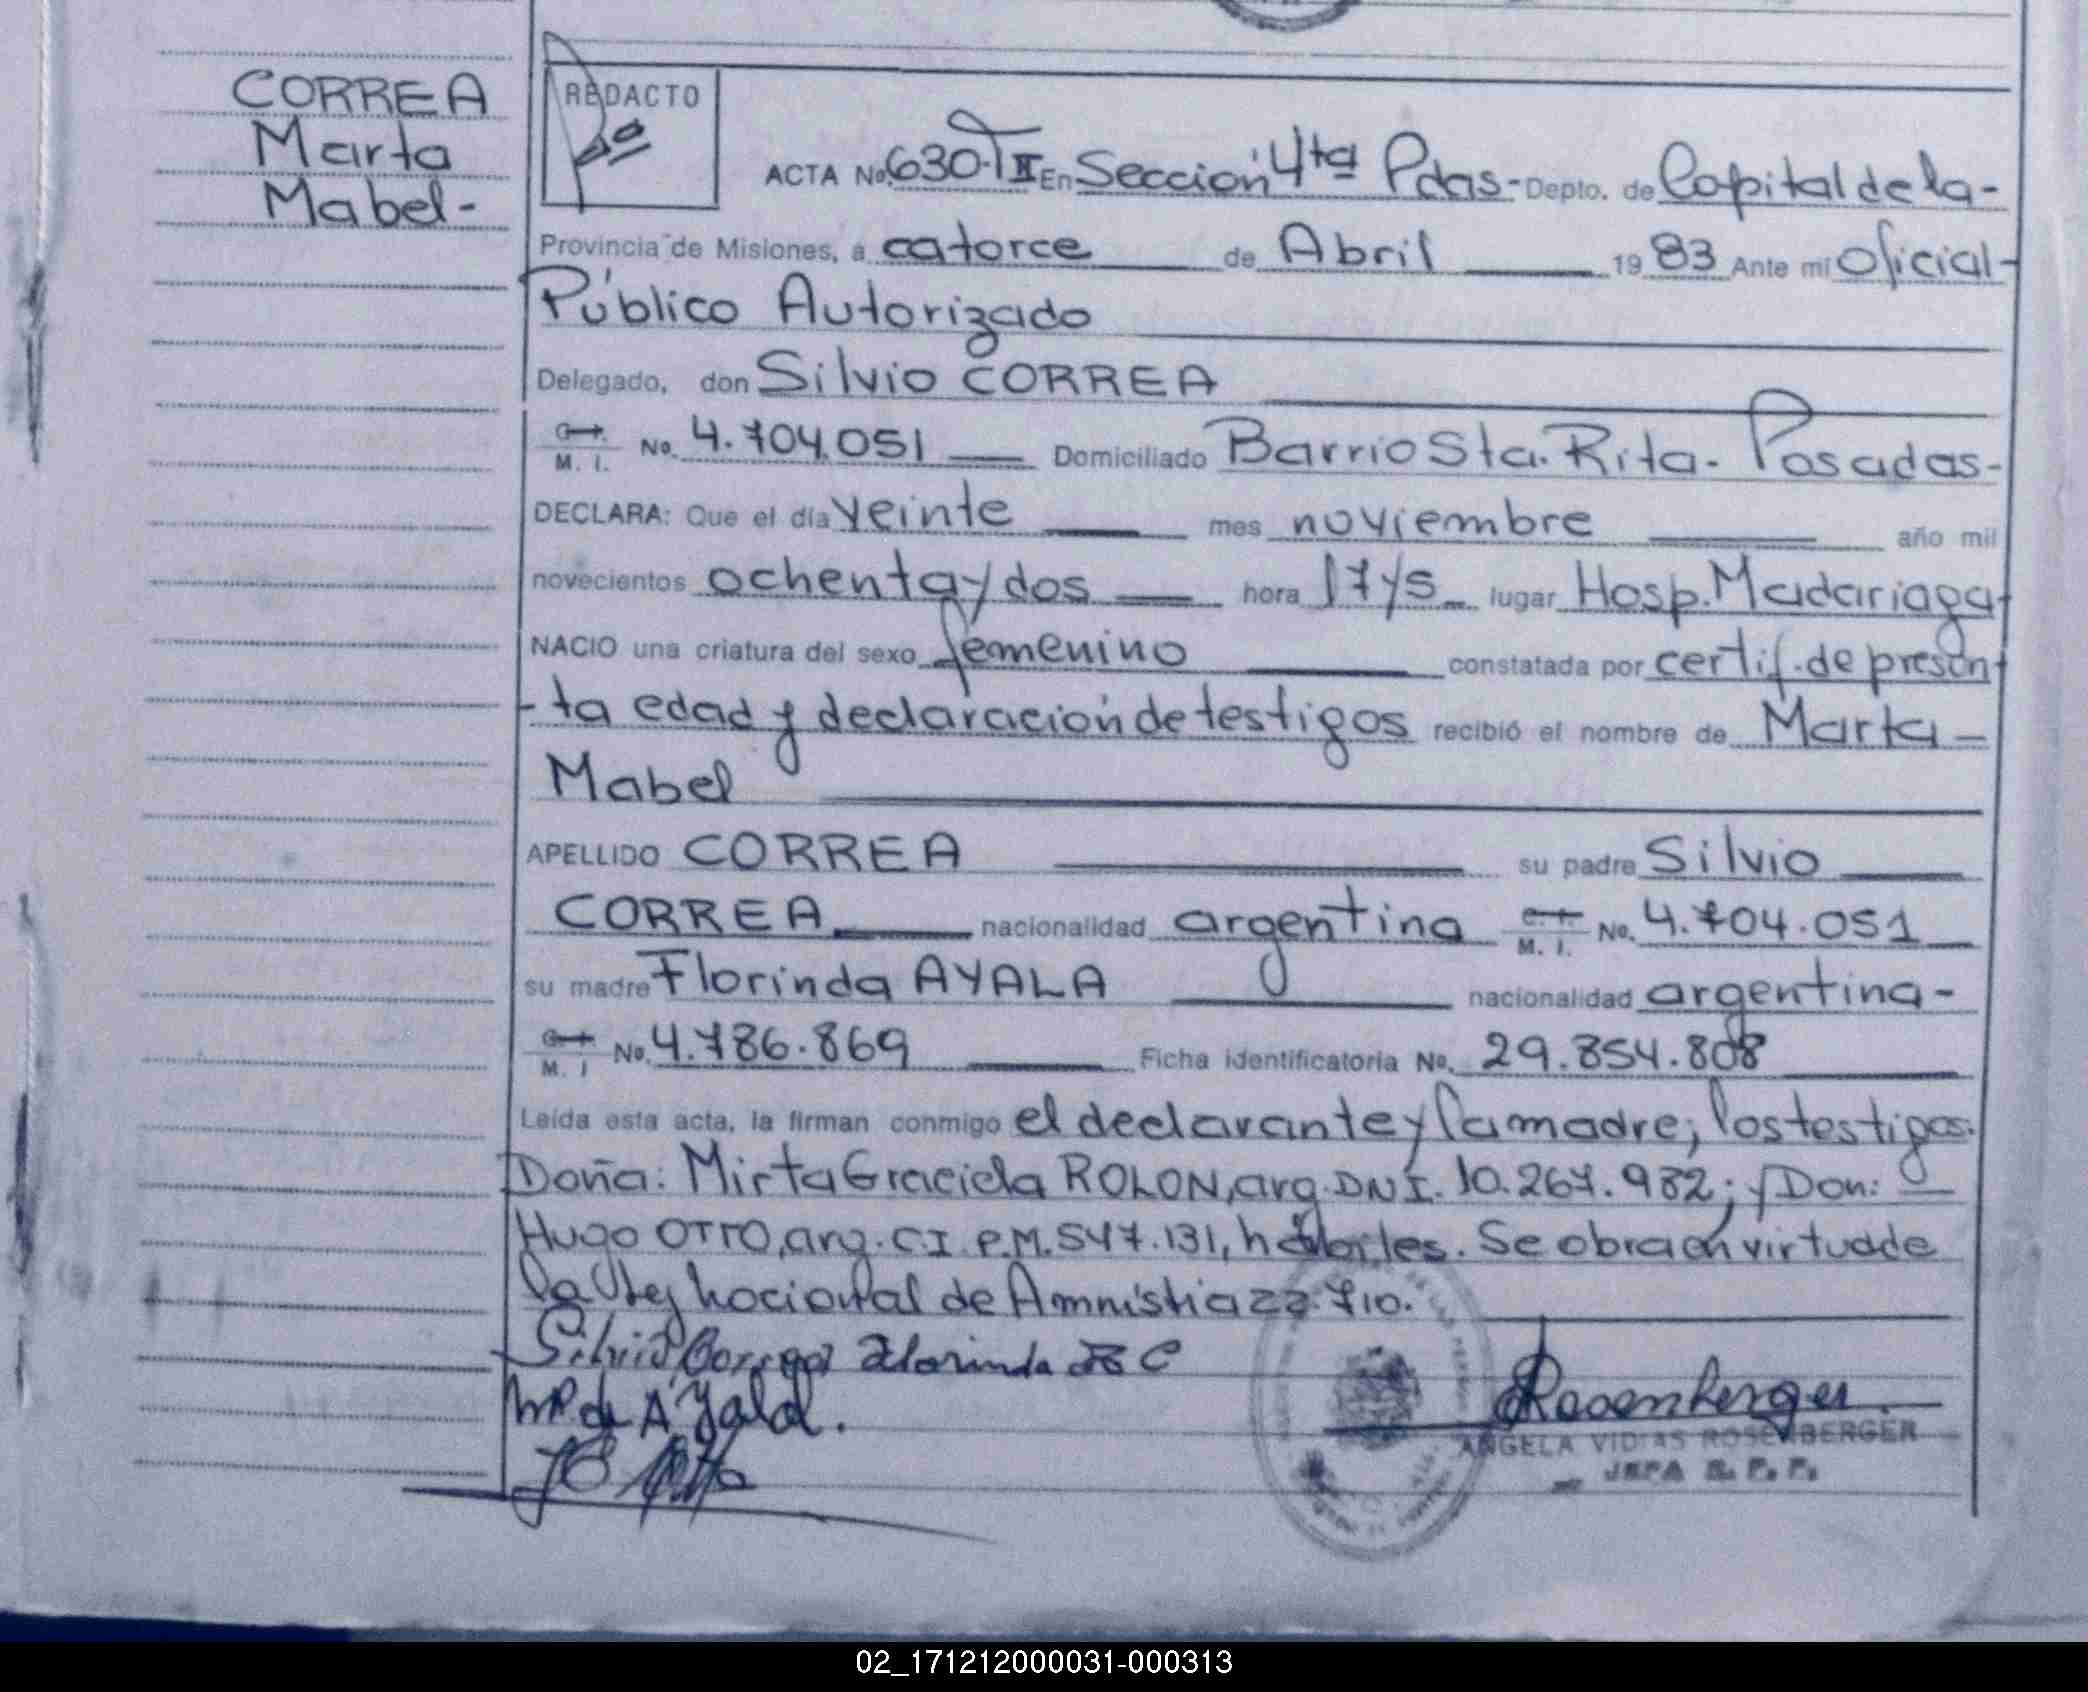 CORREA
Marta
Mabel-
REDACTO
ACTA No. 630-TII En Sección 4ta Pdas.- Depto. de Capital de la-
Provincia de Misiones, a catorce de Abril 1983 Ante mi Oficial-
Público Autorizado
Delegado, don Silvio CORREA
M. I. No. 4.704.051 Domiciliado Barrio Sta. Rita- Posadas-
DECLARA: Que el día veinte mes noviembre año mil
novecientos ochenta y dos hora 17/5 lugar Hosp. Madariaga-
NACIO una criatura del sexo femenino constatada por certif. de presun-
-ta edad y declaración de testigos recibió el nombre de Marta-
Mabel
APELLIDO CORREA su padre Silvio
CORREA nacionalidad argentina M. I. No. 4.704.051
su madre Florinda AYALA nacionalidad argentina-
M. I No. 4.786.869 Ficha identificatoria No. 29.854.808
Leída esta acta, la firman conmigo el declarante y la madre; los testigos.
Doña: Mirta Graciela ROLON, arg. DNI. 10.267.982; y Don:
Hugo OTTO, arg. C.I. P.M. 547.131, hábiles. Se obra en virtud de
la Ley Nacional de Amnistia 22.710.
Silvio Correa Florinda
de Ayala.
Rosenberger
ANGELA VIDIAS ROSENBERGER
JEFA R. P. P.
02_171212000031-000313